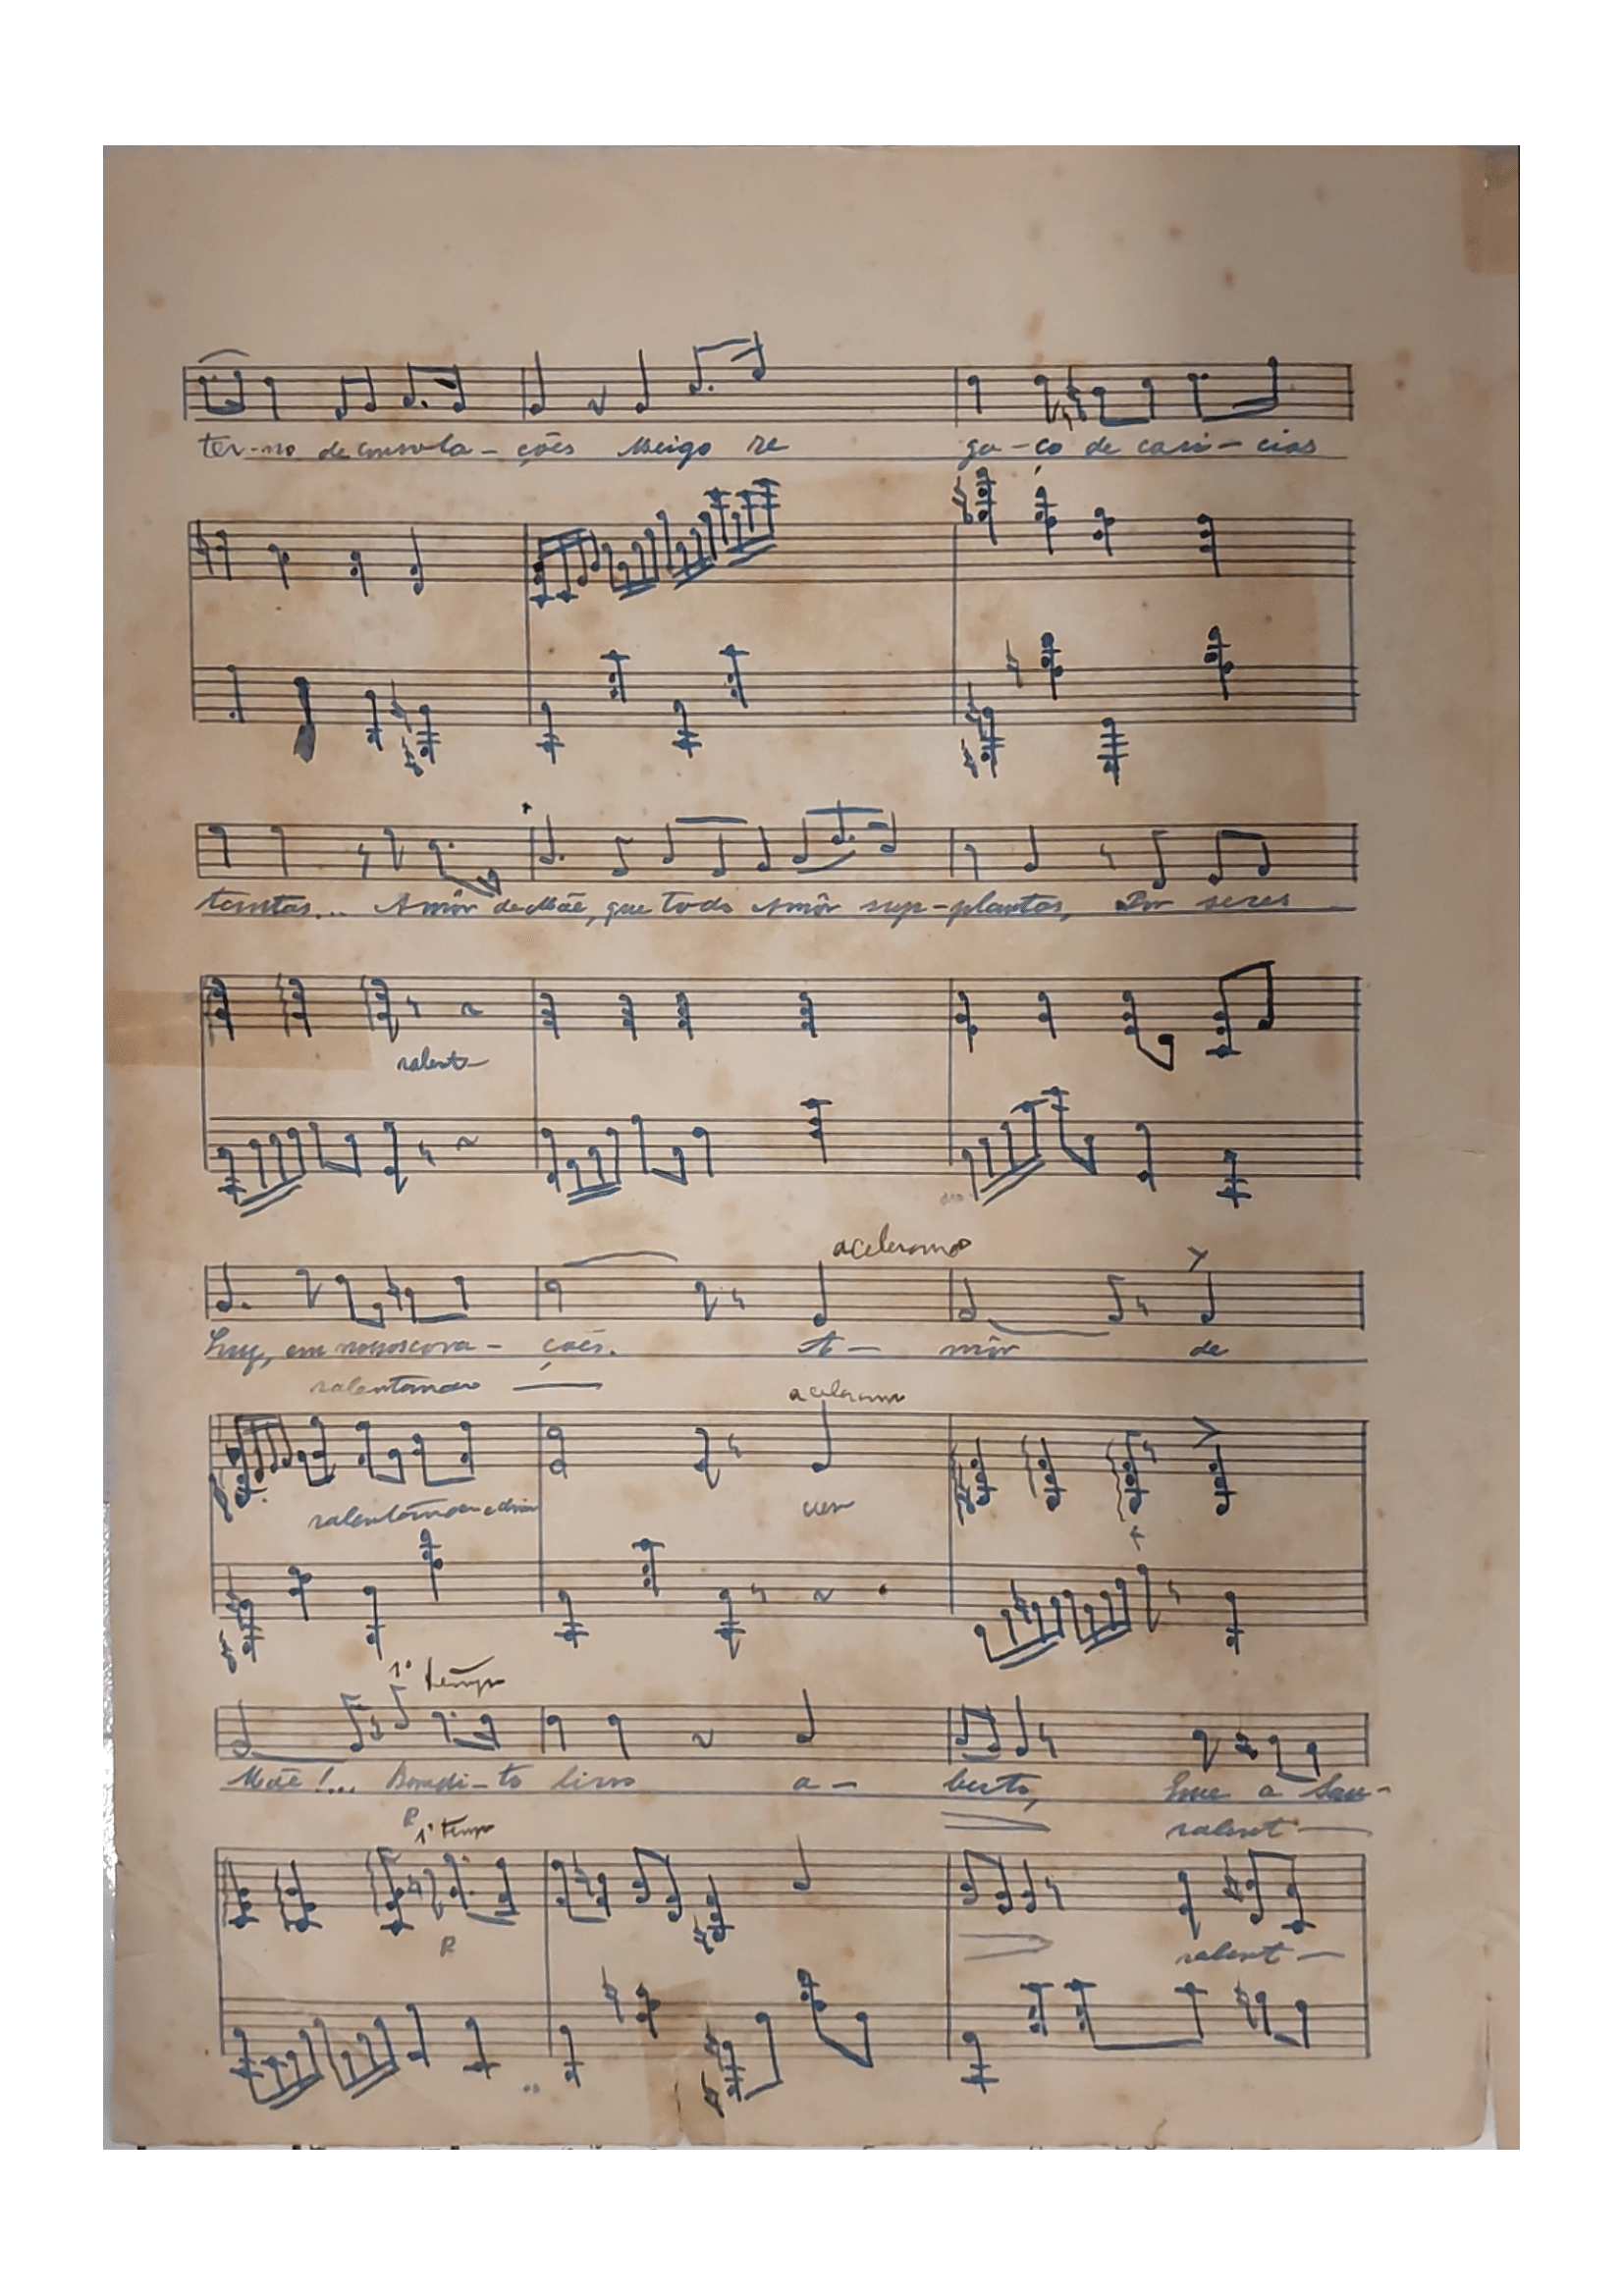 ter-no de consola-ções Meigo re ga-ço de cari-cias
tantas... Amôr de Mãe, que todo Amôr sup-plantas, Por seres
ralent-
acelerando
Luz, em nossos cora-ções. A- môr de
ralentando
acelerando
ralentando e dim
cresc
1º tempo
Mãe!... Bemdi-to livro a- berto, Que a Sau-
P 1º tempo ralent-
P ralent-